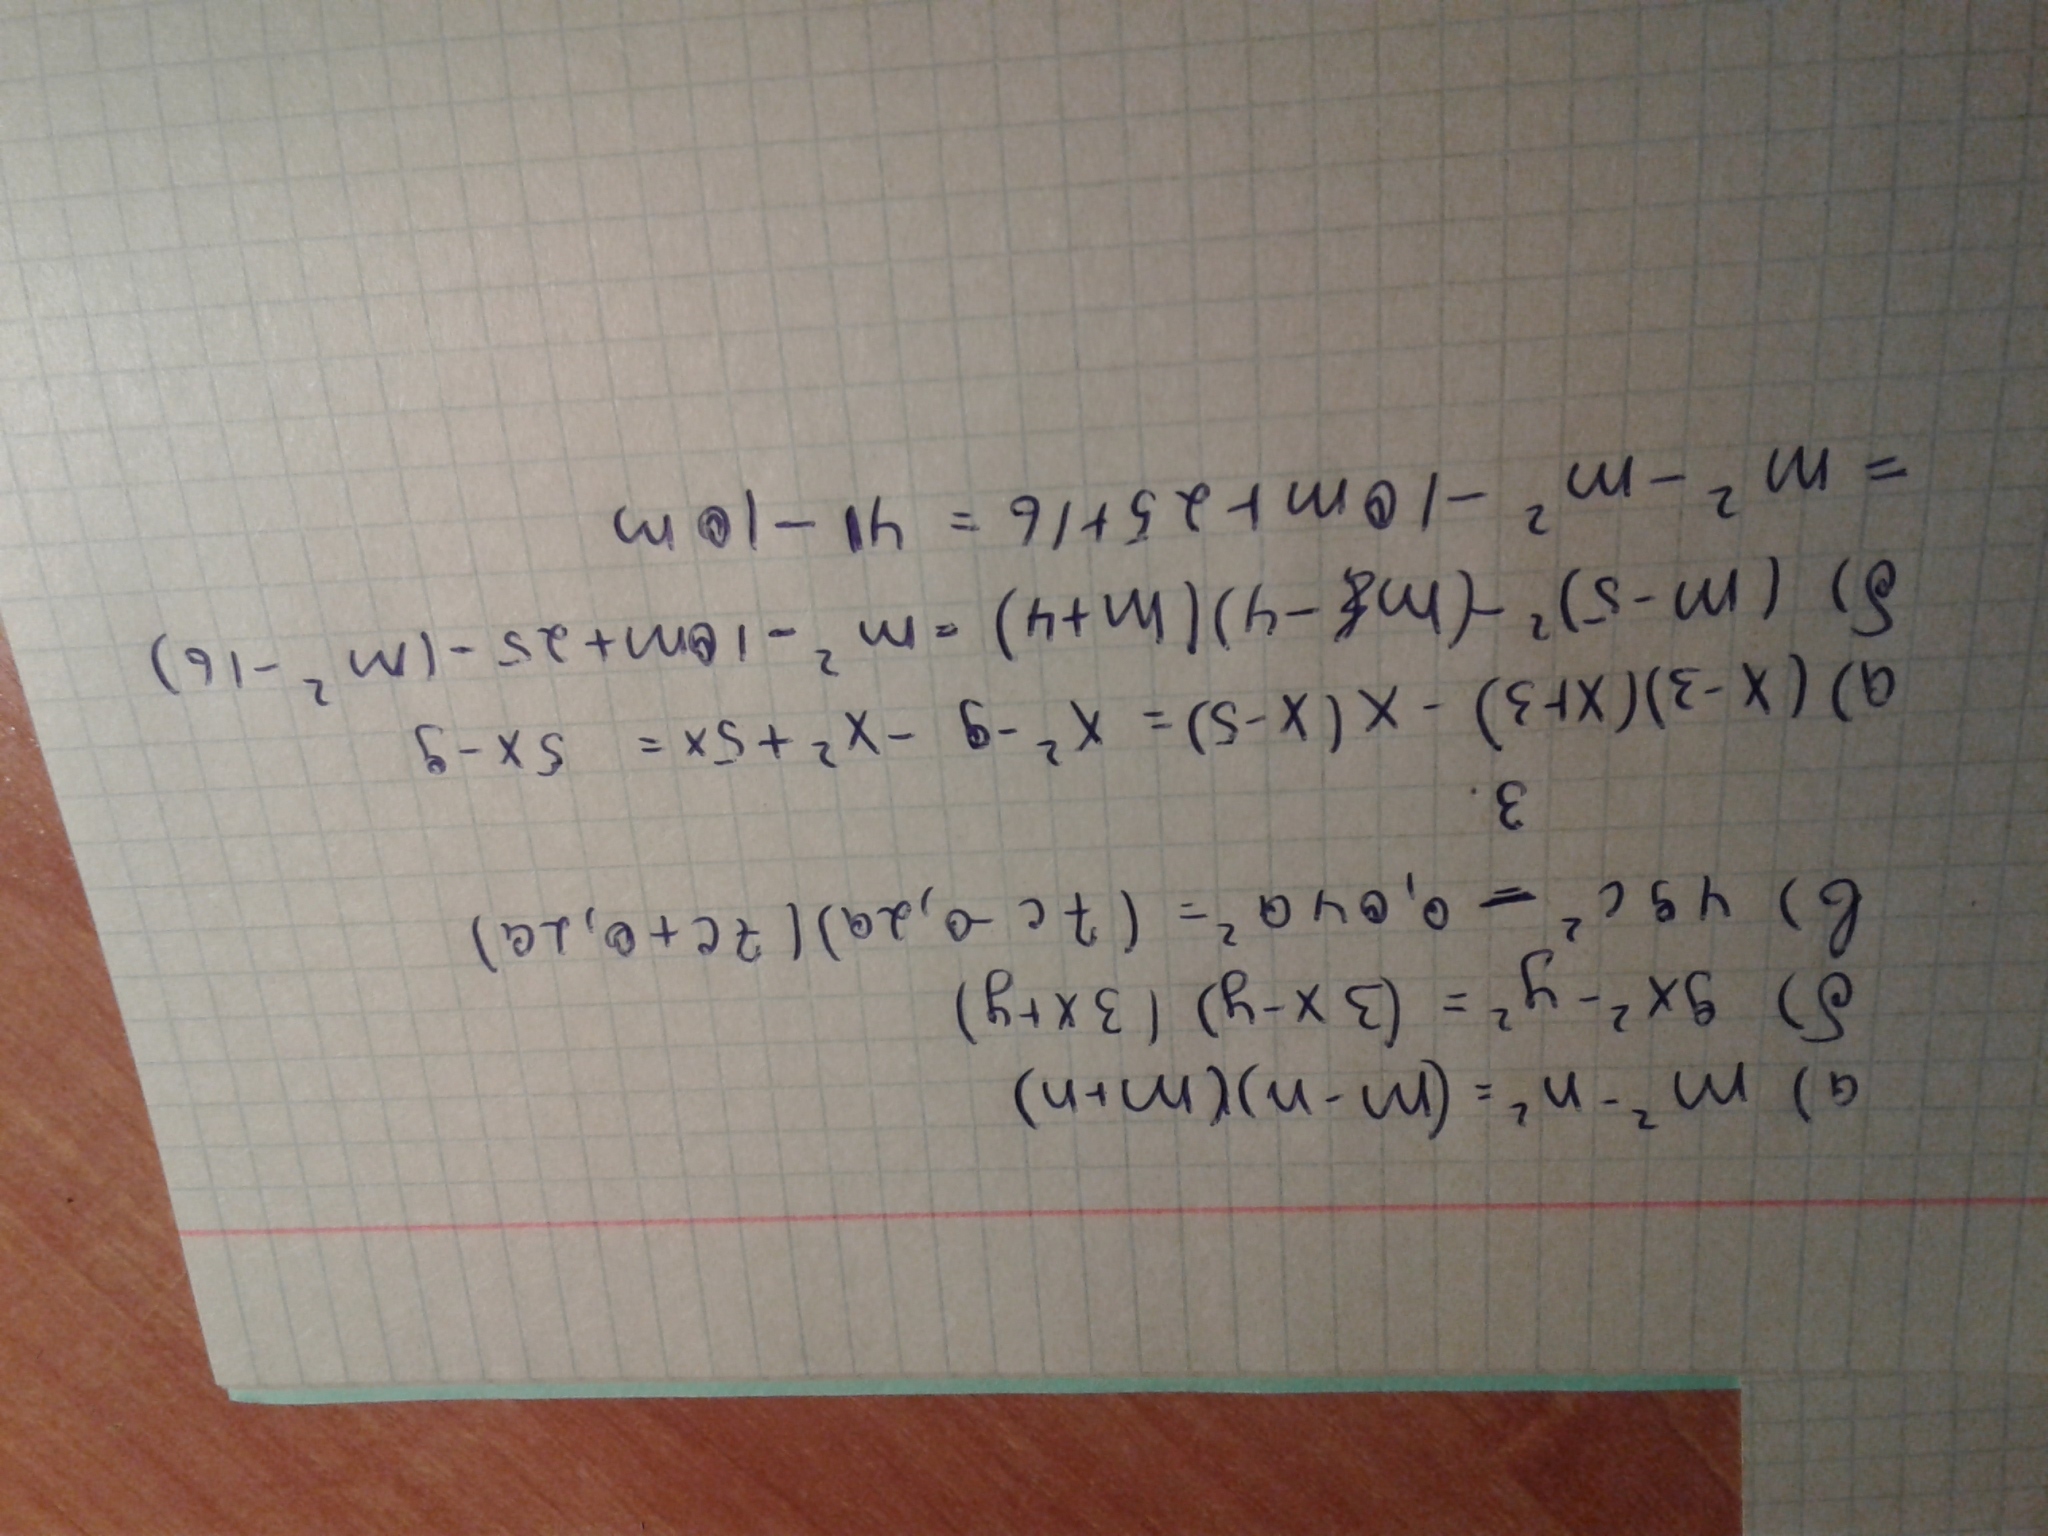 а) m² - n² = (m-n)(m+n)
б) 9x² - y² = (3x-y)(3x+y)
в) 49c² - 0,04a² = (7c-0,2a)(7c+0,2a)
3.
а) (x-3)(x+3) - x(x-5) = x² - 9 - x² + 5x = 5x - 9
б) (m-5)² - (m-4)(m+4) = m² - 10m + 25 - (m² - 16)
= m² - m² - 10m + 25 + 16 = 41 - 10m